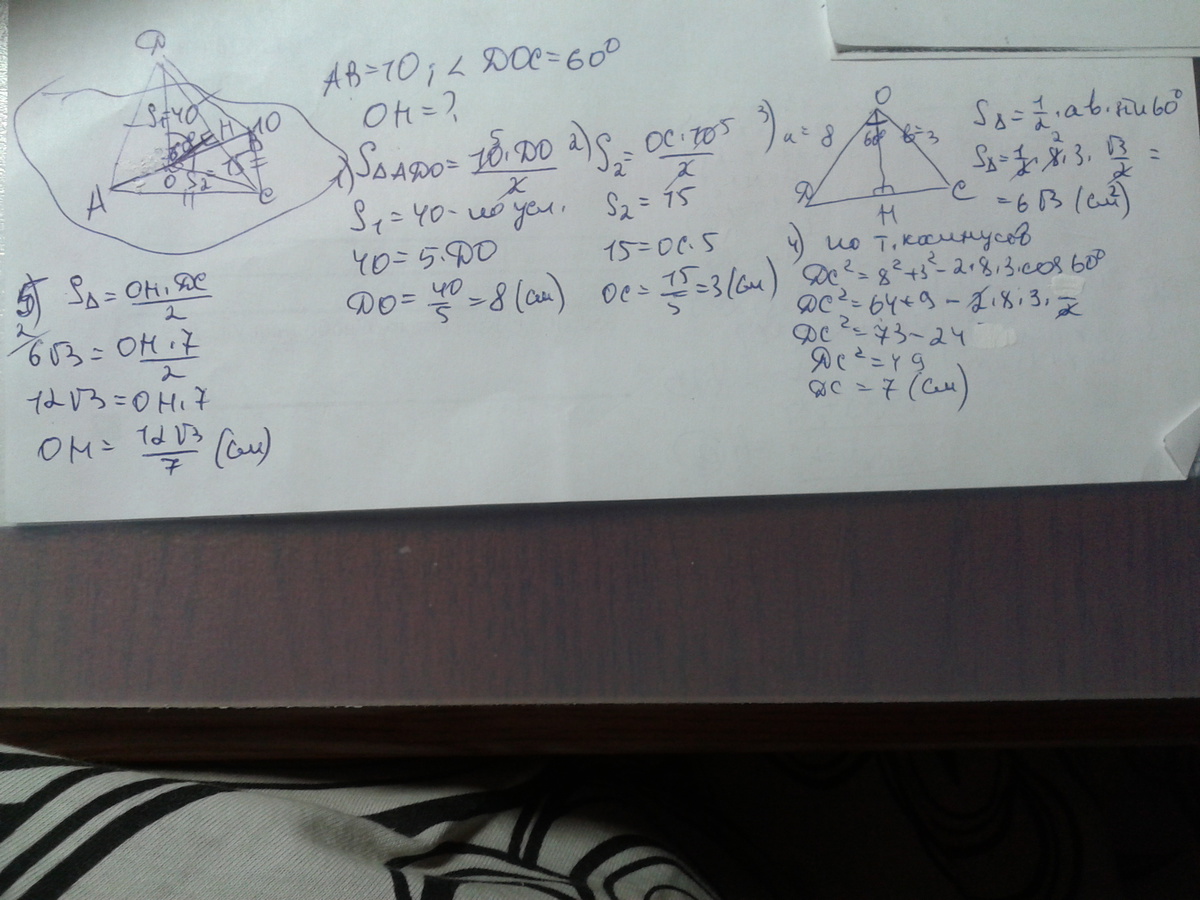 D
S₁=40
H
10
O
S₂=15
A
C
AB=10; ∠ DOC=60⁰
OH=?
1) S∆ADO = 10⁵·DO / 2
S₁=40 - по усл.
40=5·DO
DO= 40/5 =8 (см)
2) S₂= OC·10⁵ / 2
S₂=15
15=OC·5
OC= 15/5 =3 (см)
3) a=8
O
60⁰
b=3
D
H
C
S∆= 1/2 ·ab·sin60⁰
S∆= 1/2 ·8·3· √3/2 =
=6√3 (см²)
4) по т. косинусов
DC²=8²+3²-2·8·3·cos60⁰
DC²=64+9-2·8·3· 1/2
DC²=73-24
DC²=49
DC=7 (см)
5) S∆= OH·DC / 2
6√3= OH·7 / 2
12√3=OH·7
OH= 12√3 / 7 (см)